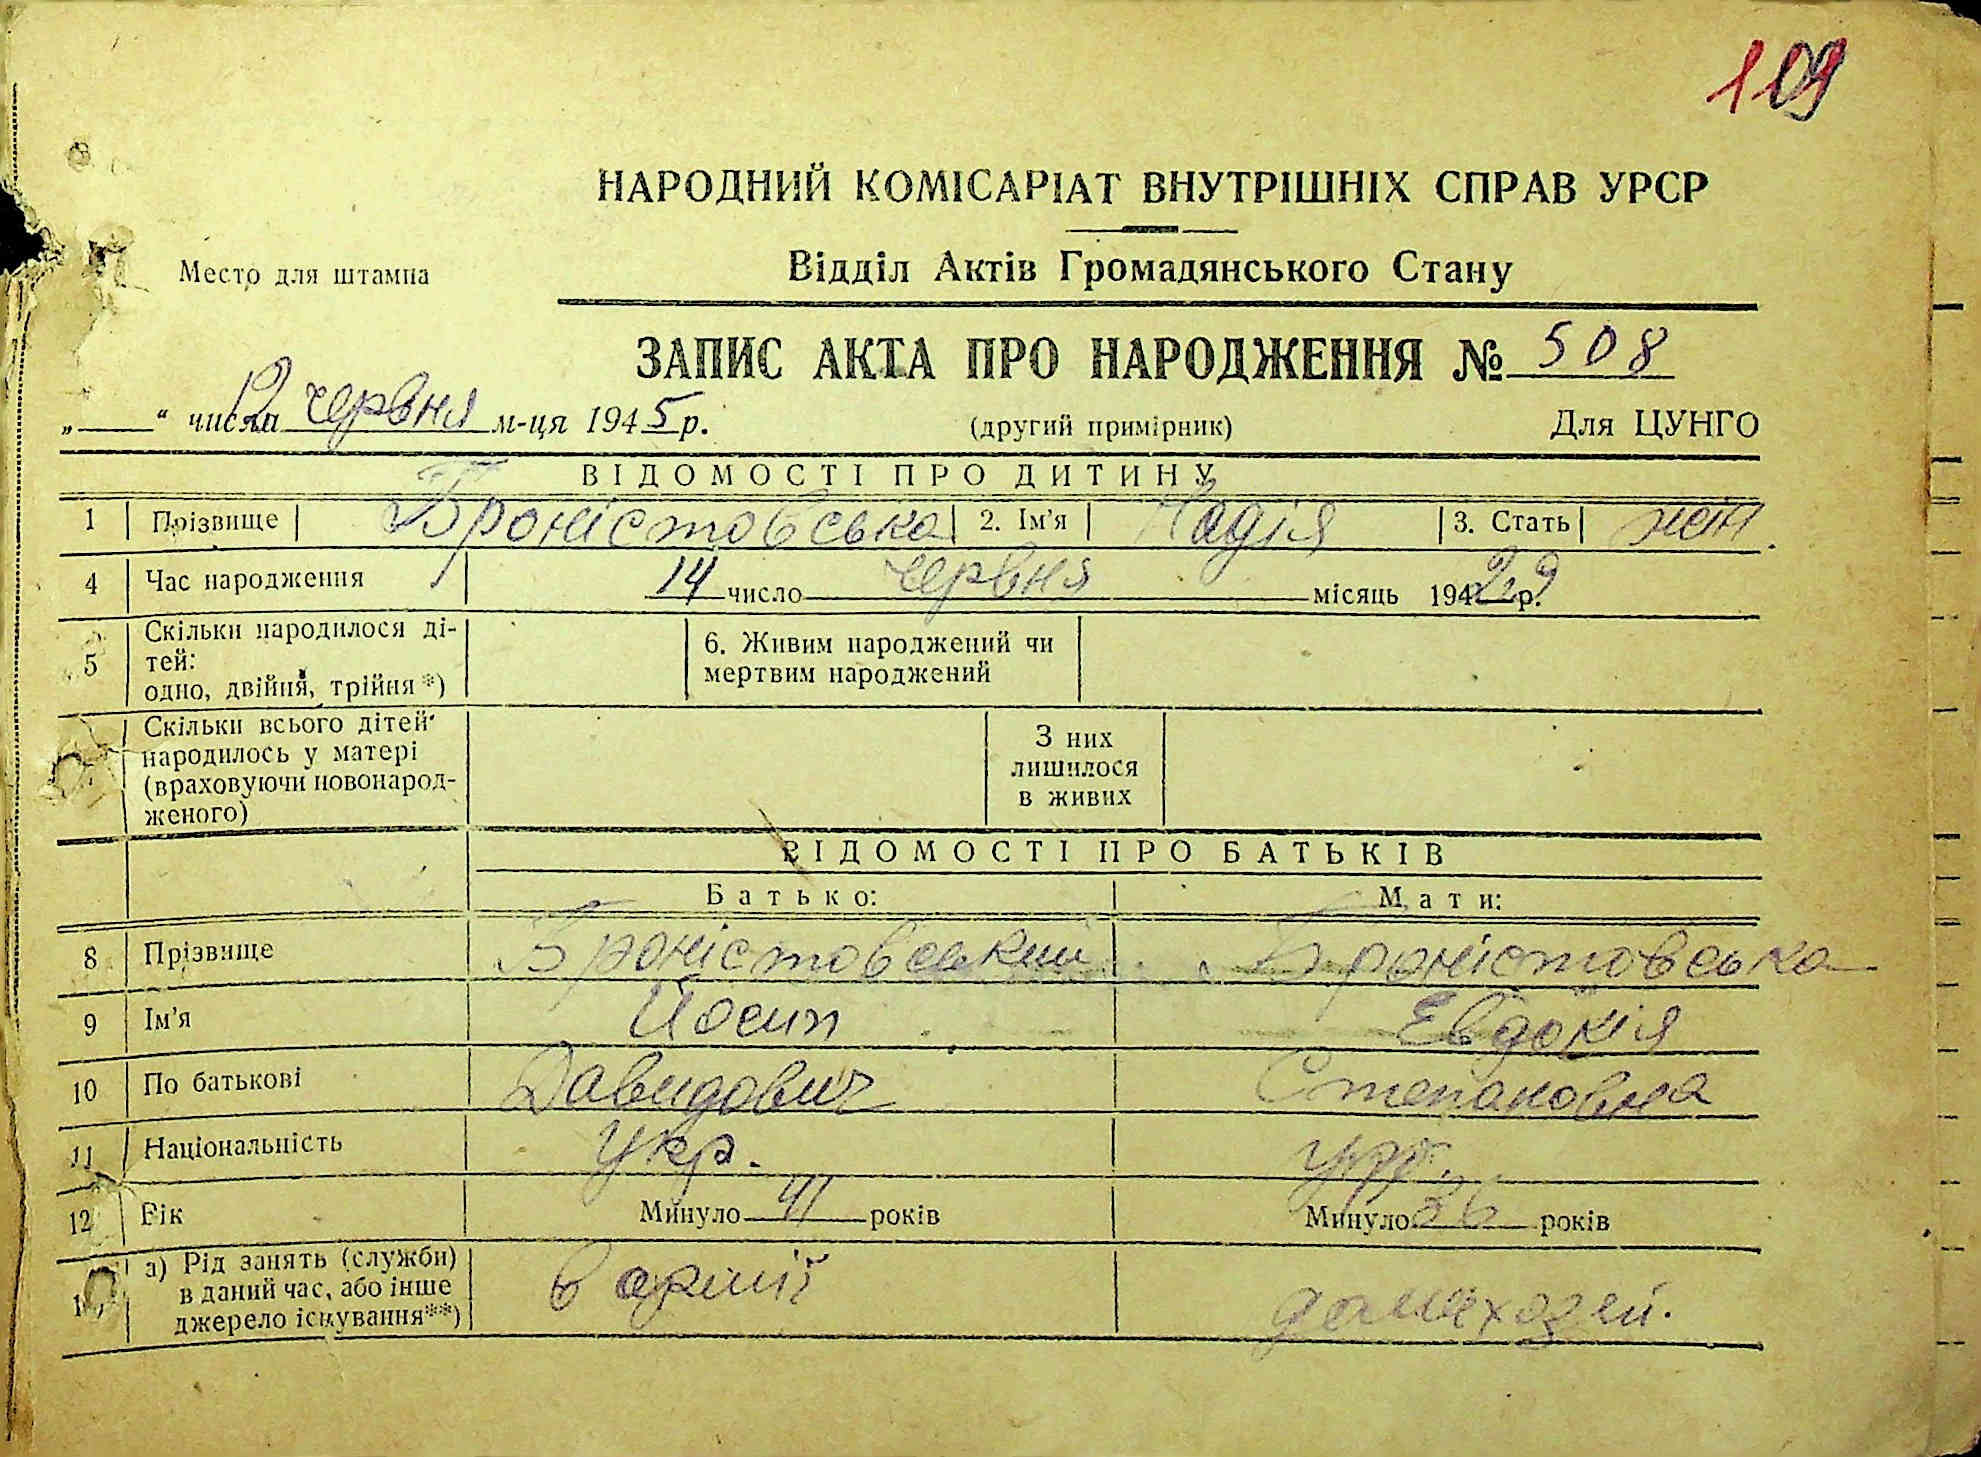 109
НАРОДНИЙ КОМІСАРІАТ ВНУТРІШНІХ СПРАВ УРСР
Відділ Актів Громадянського Стану
Место для штампа
ЗАПИС АКТА ПРО НАРОДЖЕННЯ № 508
„ “ числа 12 червня м-ця 1945 р.
(другий примірник)
Для ЦУНГО
ВІДОМОСТІ ПРО ДИТИНУ
1 Прізвище Броністовська 2. Ім’я Надія 3. Стать жін.
4 Час народження 14 число червня місяць 1929 р.
5 Скільки народилося ді-
тей:
одно, двійня, трійня *)
6. Живим народжений чи
мертвим народжений
Скільки всього дітей
народилось у матері
(враховуючи новонарод-
женого)
З них
лишилося
в живих
ВІДОМОСТІ ПРО БАТЬКІВ
Батько: Мати:
8 Прізвище Броністовський Броністовська
9 Ім’я Йосип Евдокія
10 По батькові Давидович Степановна
11 Національність укр. укр.
12 Рік Минуло 41 років Минуло 36 років
а) Рід занять (служби)
в даний час, або інше
джерело існування**)
в армії
домохозяй.